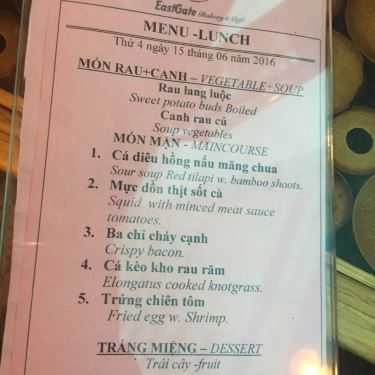 EastGate (Bakery & Cafe)
MENU -LUNCH
Thứ 4 ngày 15 tháng 06 năm 2016
MÓN RAU+CANH – VEGETABLE+SOUP
Rau lang luộc
Sweet potato buds Boiled
Canh rau củ
Soup vegetables
MÓN MẶN - MAINCOURSE
1. Cá diêu hồng nấu măng chua
Sour soup Red tilapi w. bamboo shoots.
2. Mực dồn thịt sốt cà
Squid with minced meat sauce
tomatoes.
3. Ba chỉ cháy cạnh
Crispy bacon.
4. Cá kèo kho rau răm
Elongatus cooked knotgrass.
5. Trứng chiên tôm
Fried egg w. Shrimp.
TRÁNG MIỆNG – DESSERT
Trái cây -fruit